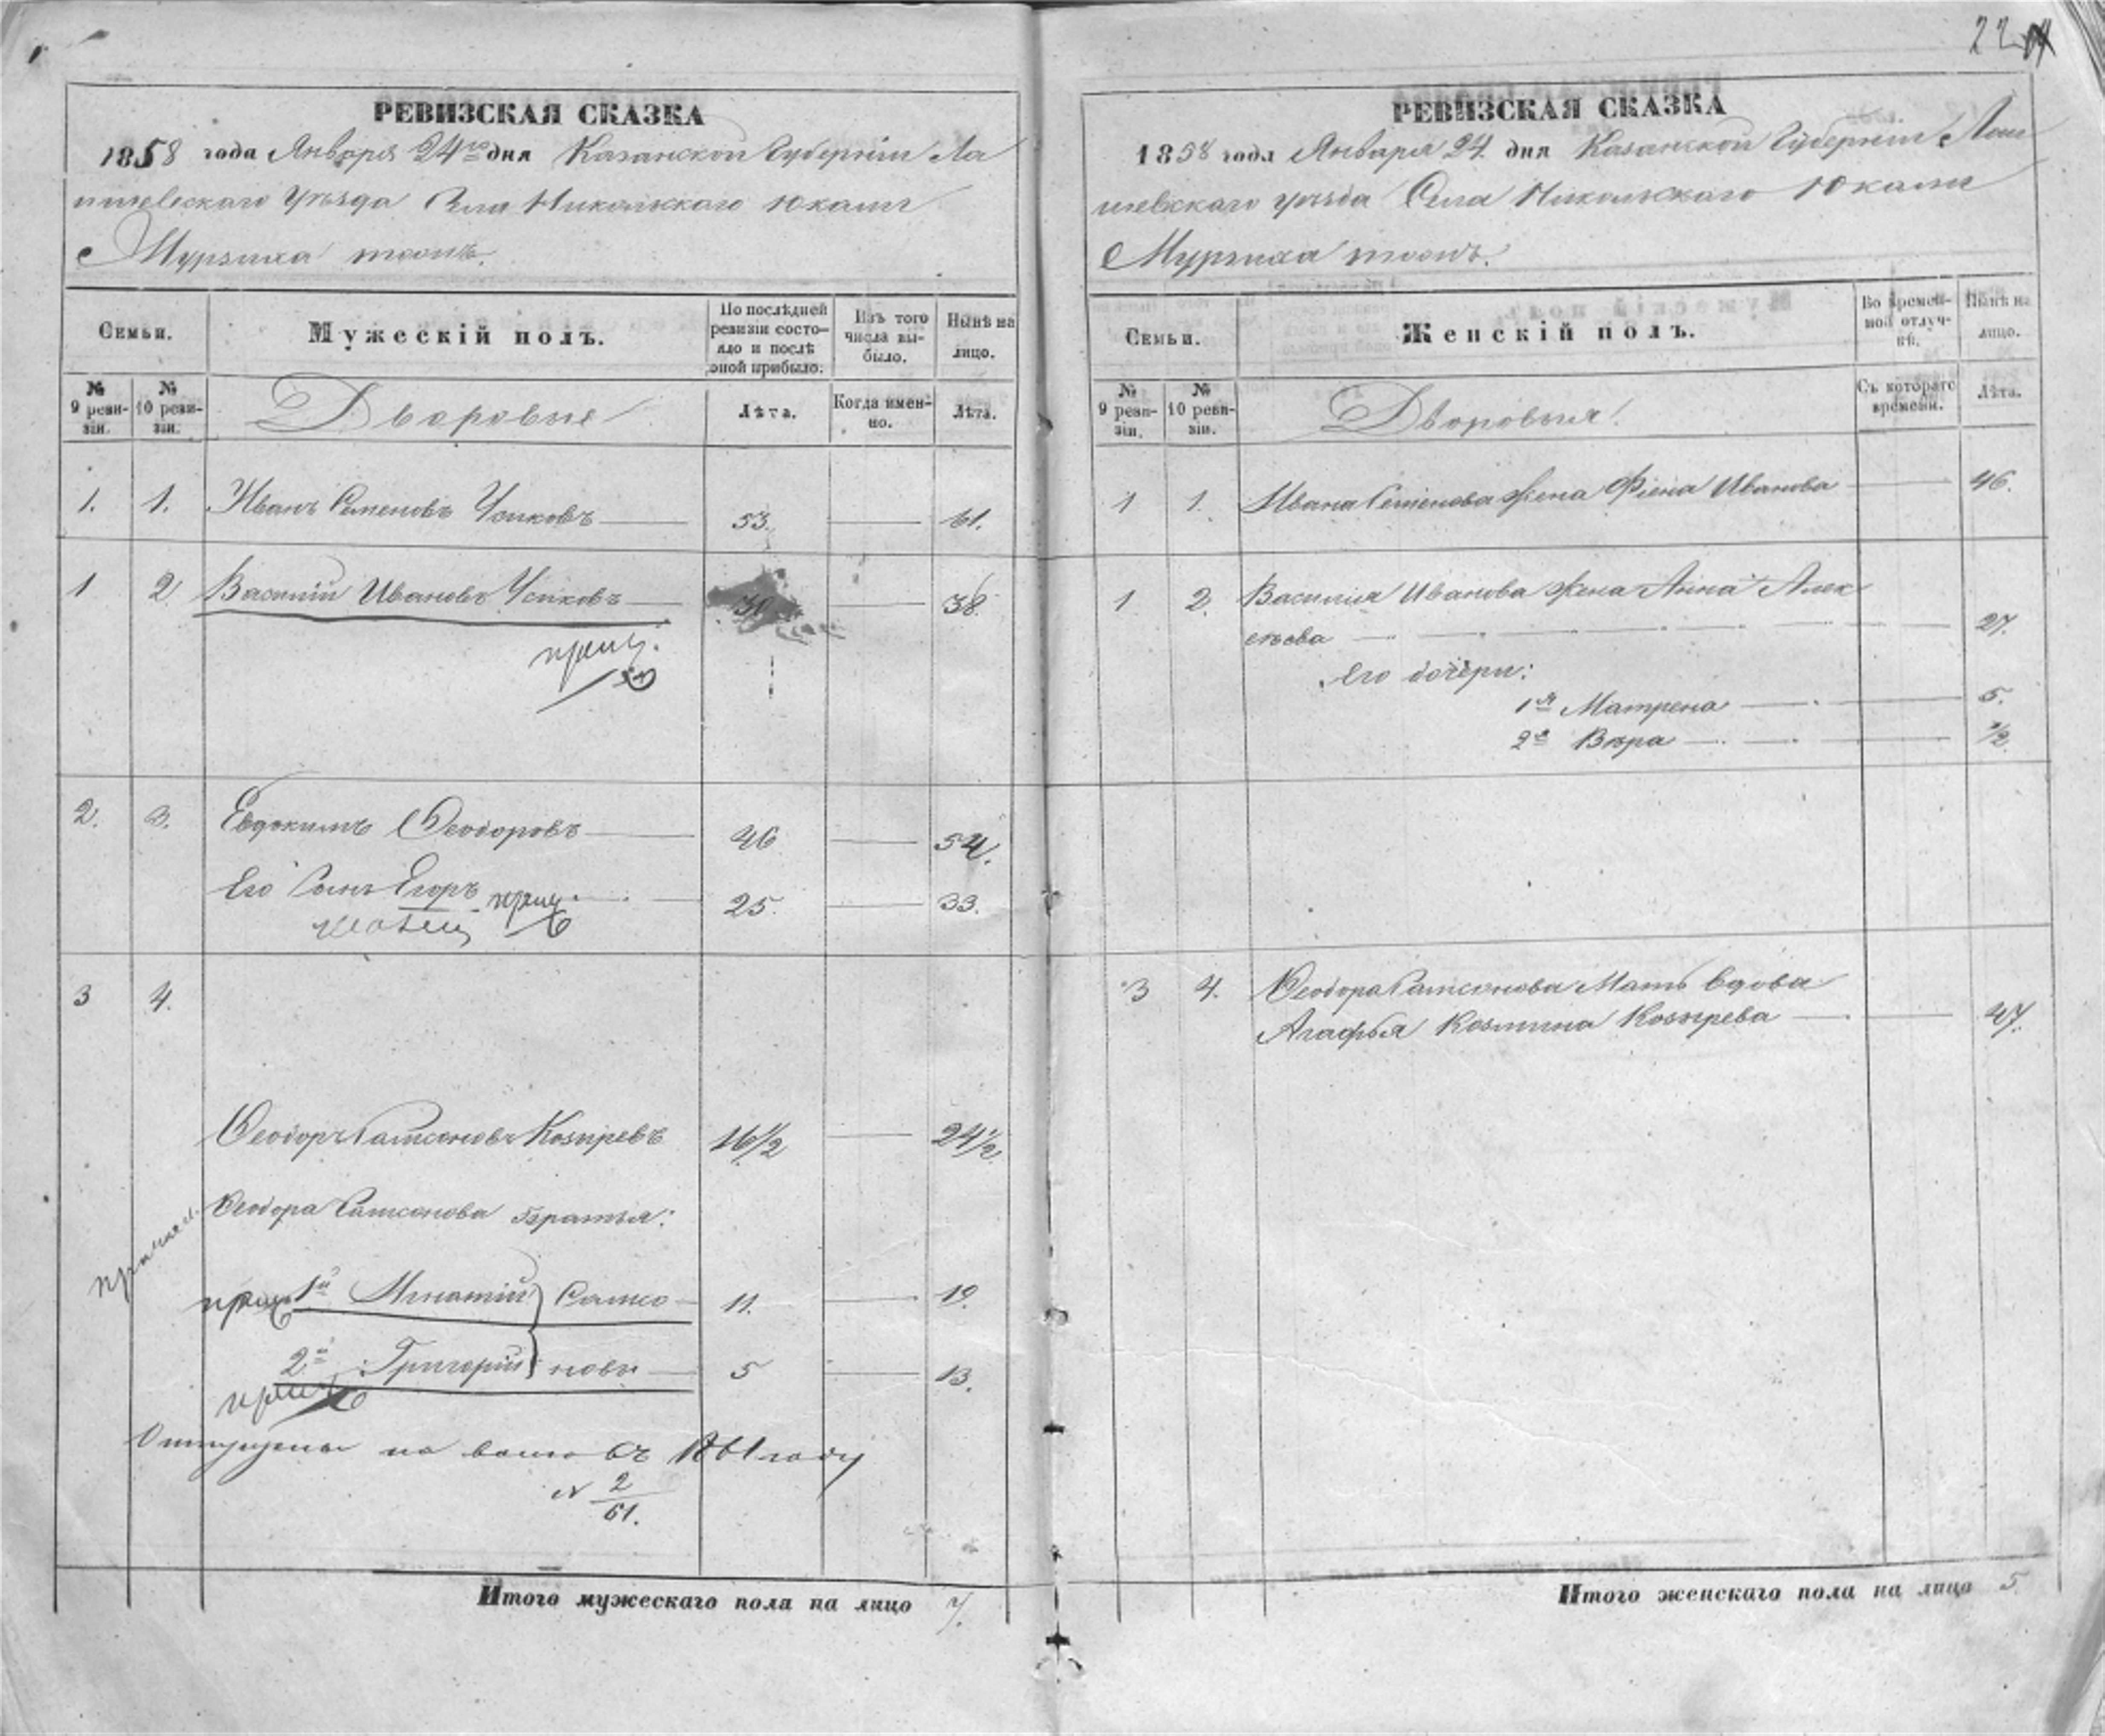 22
РЕВИЗСКАЯ СКАЗКА
1858 года Января 24го дня Казанской Губерніи Ла
ишевскаго Уѣзда Села Никольскаго Юкали
Мурзиха тожъ.
Семьи.
Мужескій полъ.
По послѣдней ревизіи состояло и послѣ оной прибыло.
Изъ того числа выбыло.
Нынѣ на лицо.
№ 9 ревизіи.
№ 10 ревизіи.
Дворовые
Лѣта.
Когда именно.
Лѣта.
1. 1. Иванъ Семеновъ Усиковъ 53. 61.
1 2 Василій Ивановъ Усиковъ 30 38.
2. 3. Евдокимъ Ѳеодоровъ 46 54.
Его Сынъ Егоръ 25. 33.
3 4.
Ѳеодоръ Самсоновъ Козыревъ 16½ 24½
Ѳеодора Самсонова братья:
1й Игнатій } Самсо 11. 19.
2й Григорій } новы 5 13.
Отпущены на волю въ 1861 году
N 2/61.
Итого мужескаго пола на лицо 7.
РЕВИЗСКАЯ СКАЗКА
1858 года Января 24 дня Казанской Губерніи Лаи
шевскаго уѣзда Села Никольскаго Юкали
Мурзиха тожъ.
Семьи.
Женскій полъ.
Во временной отлучкѣ.
Нынѣ на лицо.
№ 9 ревизіи.
№ 10 ревизіи.
Дворовыя
Съ котораго времени.
Лѣта.
1 1. Ивана Семенова жена Фіена Иванова 46.
1 2. Василія Иванова жена Анна Алек
сѣева 27.
Его дочери:
1я Матрена 5.
2я Вѣра ½.
3 4. Ѳеодора Самсонова Мать вдова
Агафья Козмина Козырева 47.
Итого женскаго пола на лицо 5.